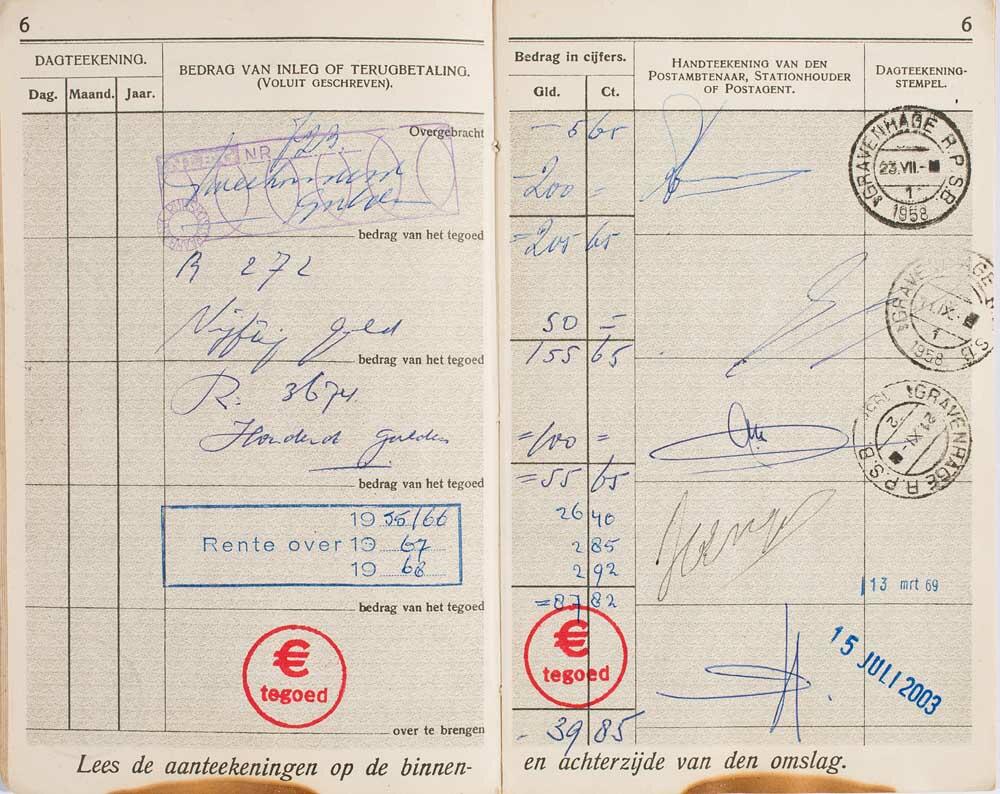 6
DAGTEEKENING.
Dag. Maand. Jaar.
BEDRAG VAN INLEG OF TERUGBETALING.
(VOLUIT GESCHREVEN).
Overgebracht
INLEG NR
Tweehonderd
Gulden
bedrag van het tegoed
R 272
Vijftig Guld
bedrag van het tegoed
R. 3674
Honderd Gulden
bedrag van het tegoed
1955/66
Rente over 1967
1968
bedrag van het tegoed
€
tegoed
over te brengen
Lees de aanteekeningen op de binnen-
6
Bedrag in cijfers.
Gld. Ct.
HANDTEEKENING VAN DEN
POSTAMBTENAAR, STATIONHOUDER
OF POSTAGENT.
DAGTEEKENING-
STEMPEL.
- 5 65
200 =
= 205 65
50 =
155 65
= 100 =
= 55 65
26 40
2 85
2 92
= 87 82
€
tegoed
- 39 85
'sGRAVENHAGE R.P.S.B.
23.VII.-
1
1958
'sGRAVENHAGE R.P.S.B.
11.IX.-
1
1958
'sGRAVENHAGE R.P.S.B.
21.XI.-
2
13 mrt 69
15 JULI 2003
en achterzijde van den omslag.